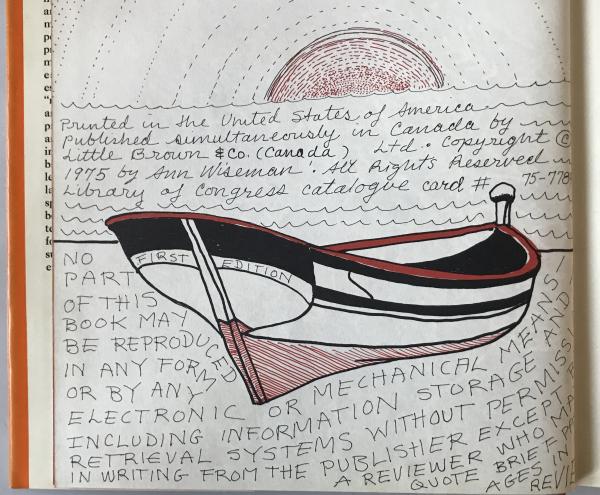 Printed in the United States of America
Published simultaneously in Canada by
Little Brown & Co. (Canada) Ltd. Copyright ©
1975 by Ann Wiseman. All Rights Reserved
Library of Congress catalogue card # 75-778
FIRST EDITION
NO
PART
OF THIS
BOOK MAY
BE REPRODUCED
IN ANY FORM
OR BY ANY
ELECTRONIC OR MECHANICAL MEANS
INCLUDING INFORMATION STORAGE AND
RETRIEVAL SYSTEMS WITHOUT PERMISSI
IN WRITING FROM THE PUBLISHER EXCEPT
A REVIEWER WHO MA
QUOTE BRIEF PA
AGES IN
REVIE